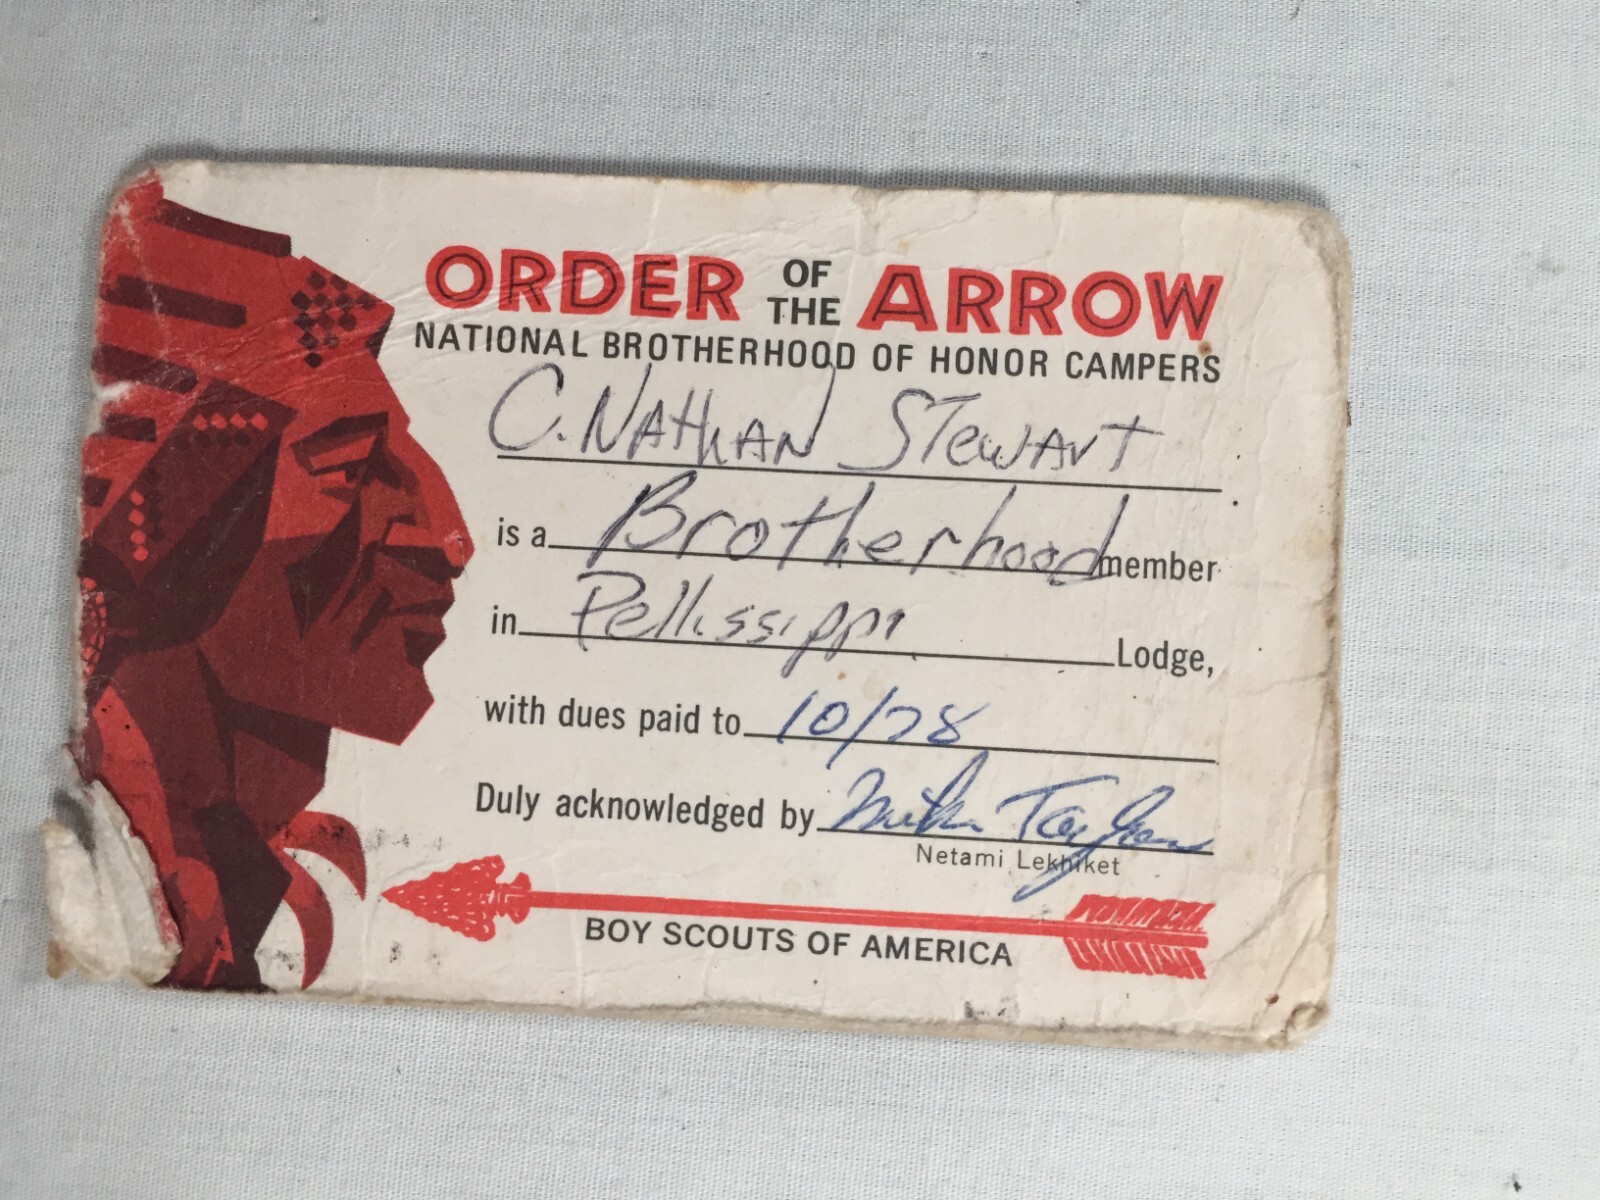 ORDER OF THE ARROW
NATIONAL BROTHERHOOD OF HONOR CAMPERS
C. NATHAN STEWART
is a Brotherhood member
in Pellissippi Lodge,
with dues paid to 10/78
Duly acknowledged by Mike Taylor
Netami Lekhiket
BOY SCOUTS OF AMERICA